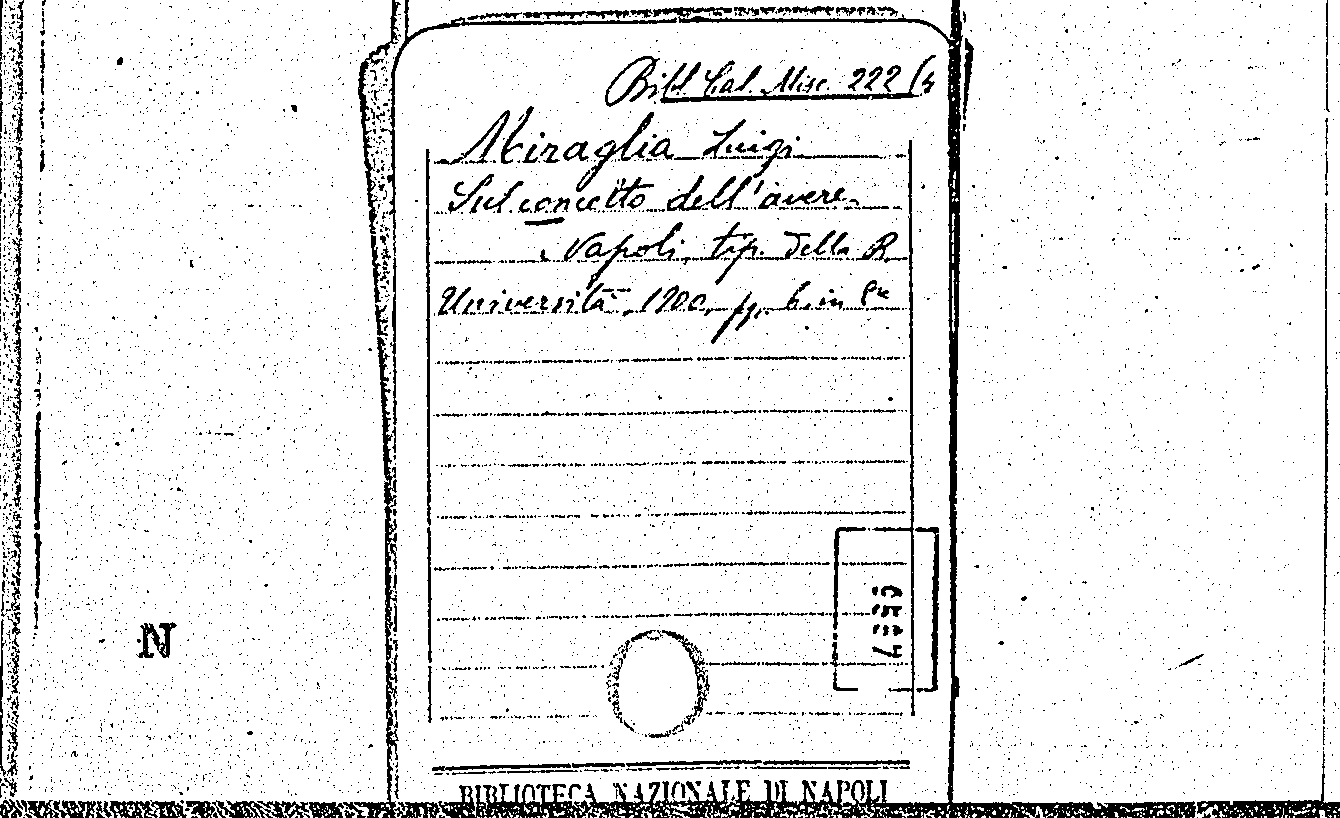 Bibl. Cal. Misc. 222/4
Miraglia Luigi
Sul concetto dell'avere.
Napoli, tip. della R.
Università, 1900, pp. 6. in 8°
N
BIBLIOTECA NAZIONALE DI NAPOLI